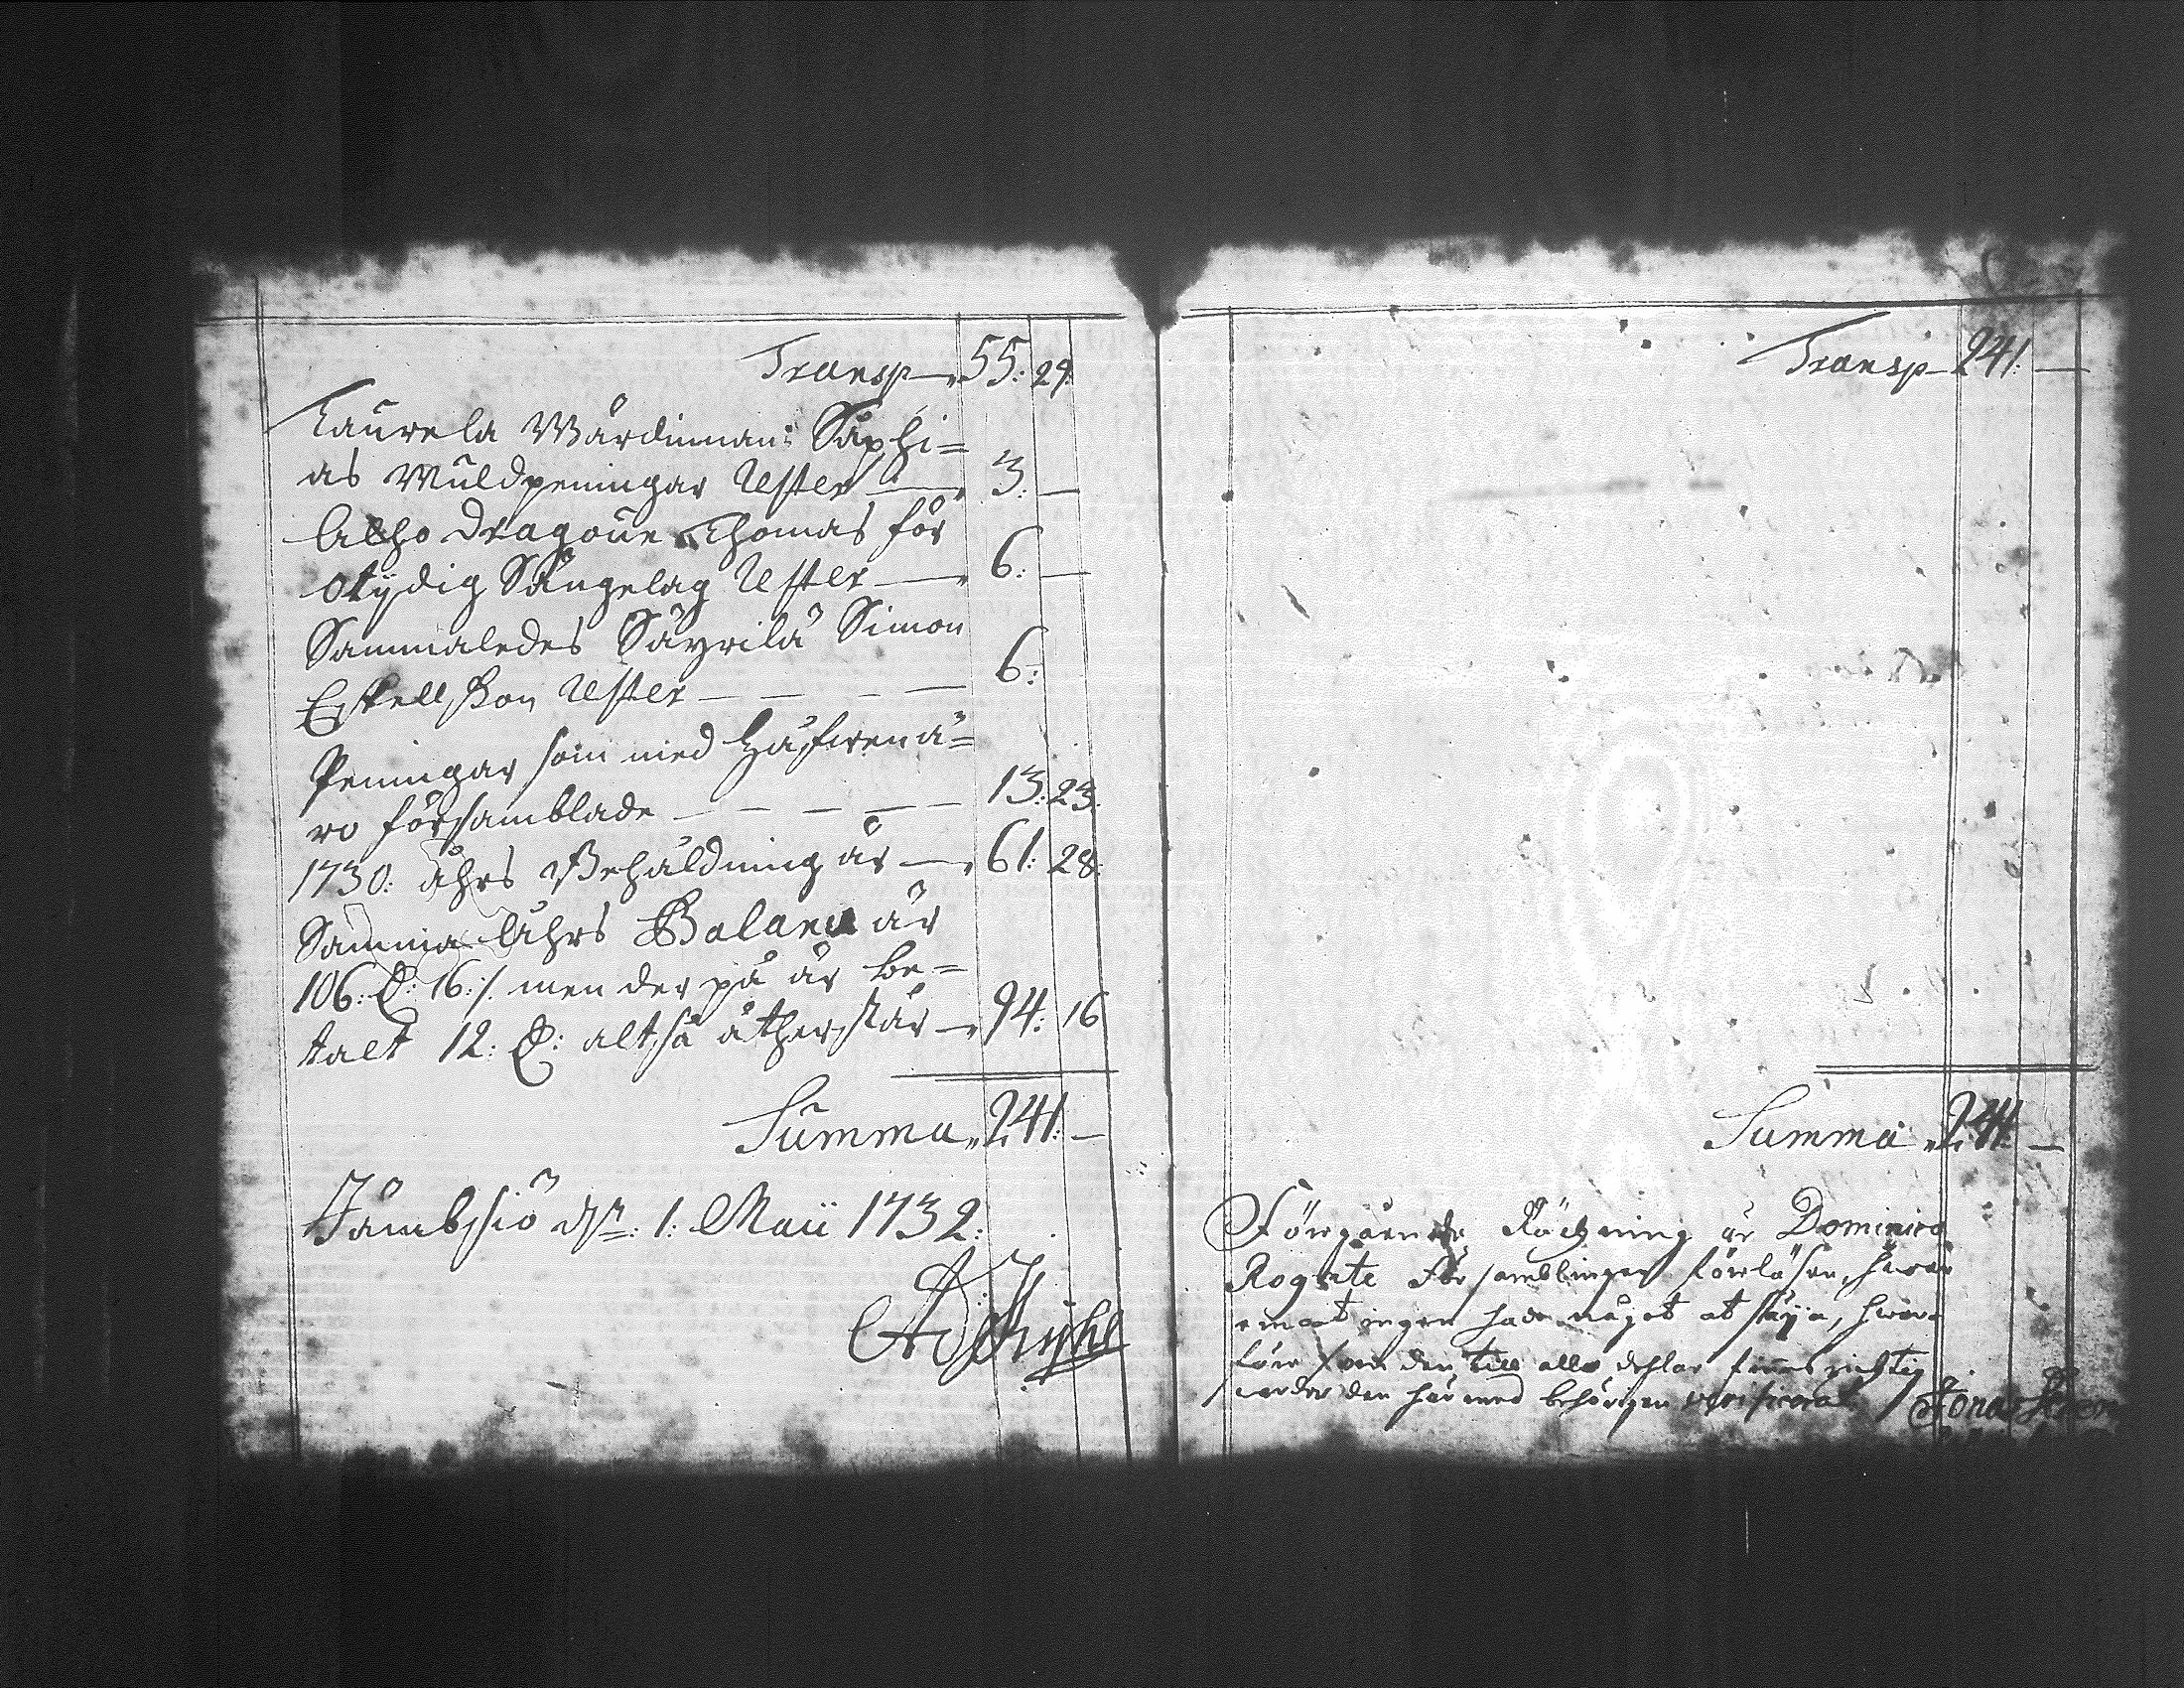 Transp 55: 29:
Taurela Wärdinnan: Säphi=
as Muldpeningar Uster 3: —
Alho Dragoun Thomas för
otydig Sängelag Uster 6: —
Sammaledes Säyrilä Simon
Eskellsson Uster 6:
Peningar som med Håfwen ä=
ro församblade 13: 23:
1730: åhrs Behåldning är 61: 28:
Samma åhrs Balance är
106: D: 16:/. men der på är be=
talt 12: D: altså återstår 94: 16
Summa 241: —
Jämbsiö dn: 1: Maii 1732:
Transp 241: —
Summa 241: —
Föregående Räckning är Dominica
Rogate Församblingen föreläsen, hwar
emot ingen hade något at säija, hwar=
före som den till alla dehlar finnes richtig
warder den här med behörigen verificerat.
Jonas